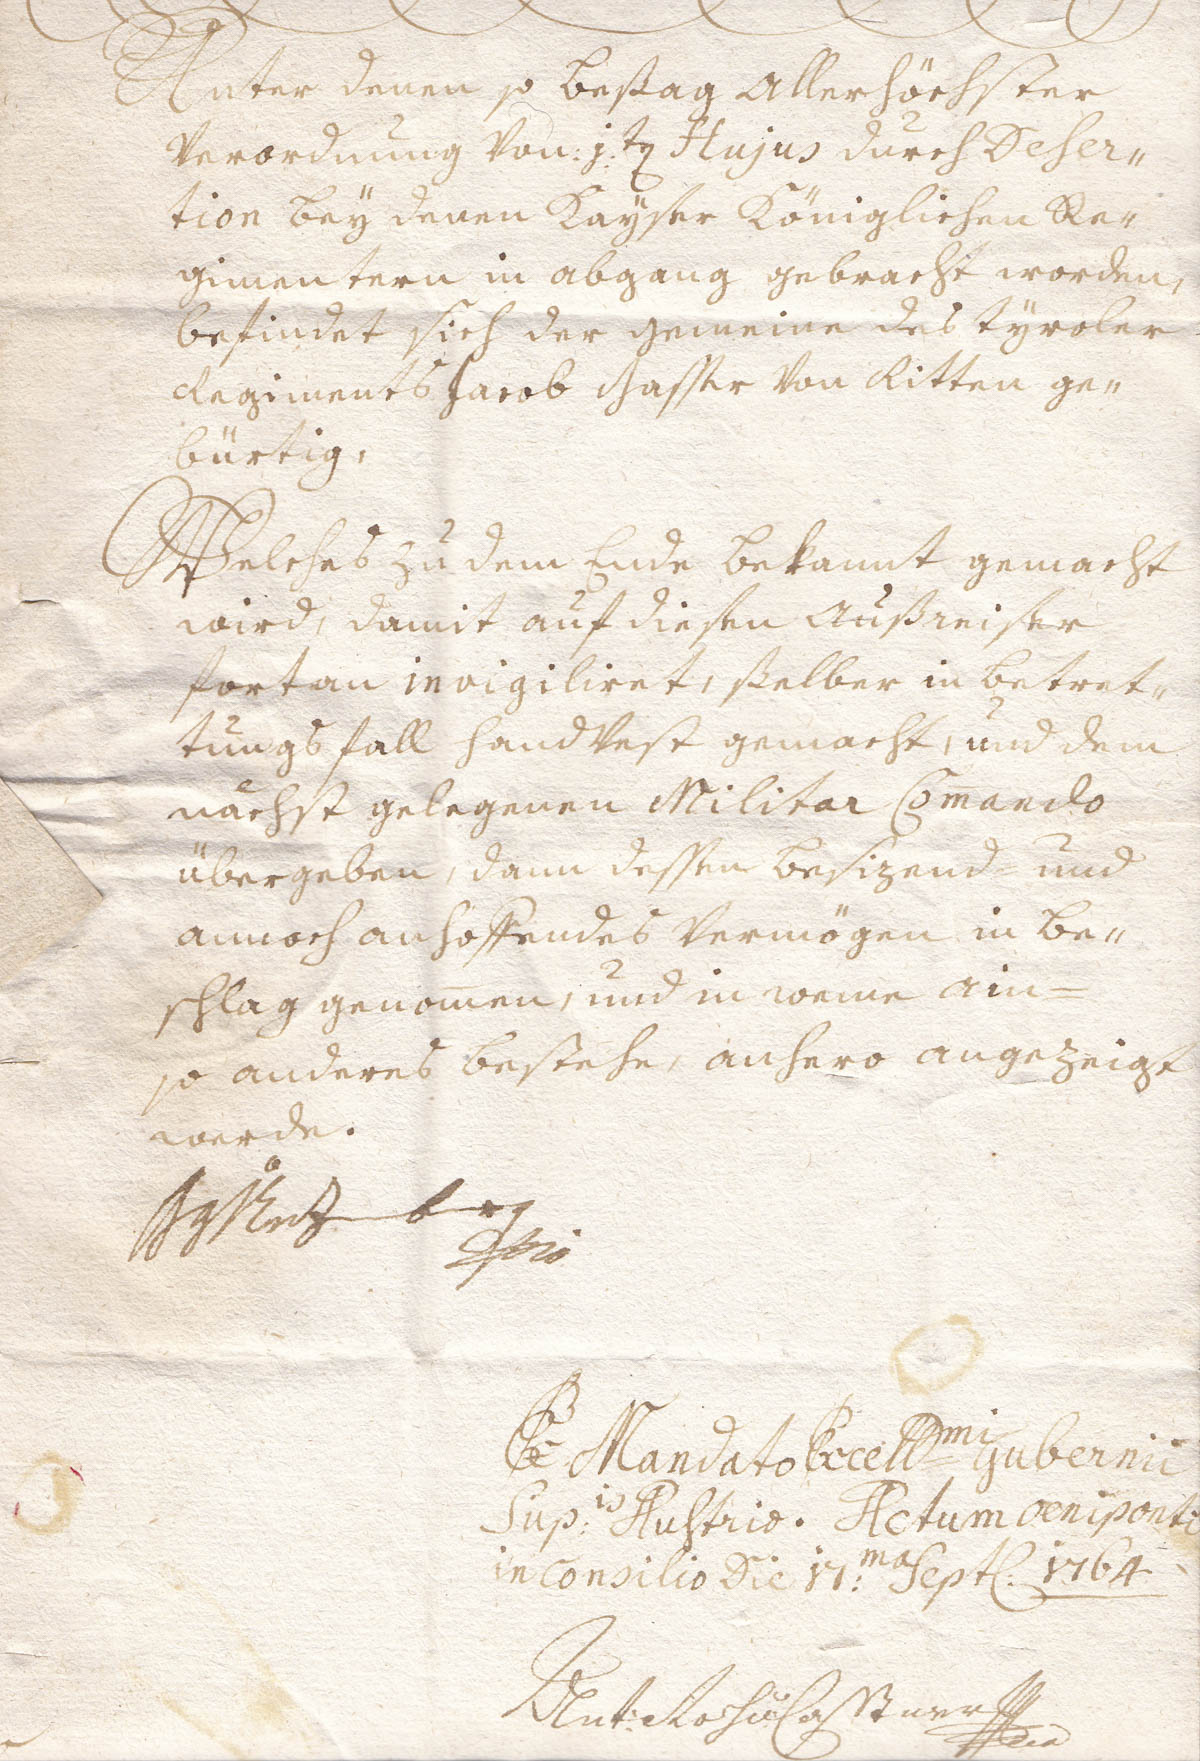 Unter denen so besag Allerhöchster
Verordnung von: j.ten Hujus durch Deser„
tion bey denen Kayser Königlichen Re„
gimentern in abgang gebracht worden,
befindet sich der gemeine des tÿroler
Regiments Jacob Gasser von Ritten ge„
bürtig.
Welches zu dem Ende bekannt gemacht
wird, damit auf diesen Außreiser
fortan invigiliret, selber in betret„
tungs fall handvest gemacht, und dem
nächst gelegenen Militar Comando
übergeben, dann dessen besizend= und
annoch anhoffendes Vermögen in be„
schlag genomen, und in weme ain=
so anderes bestehe, anhero angezeigt
werde.
Ex Mandato Excell:mi Gubernii
Sup:is Austriae. Actum Oeniponti
in Consilio Die 17:ma Sept. 1764
Ant: